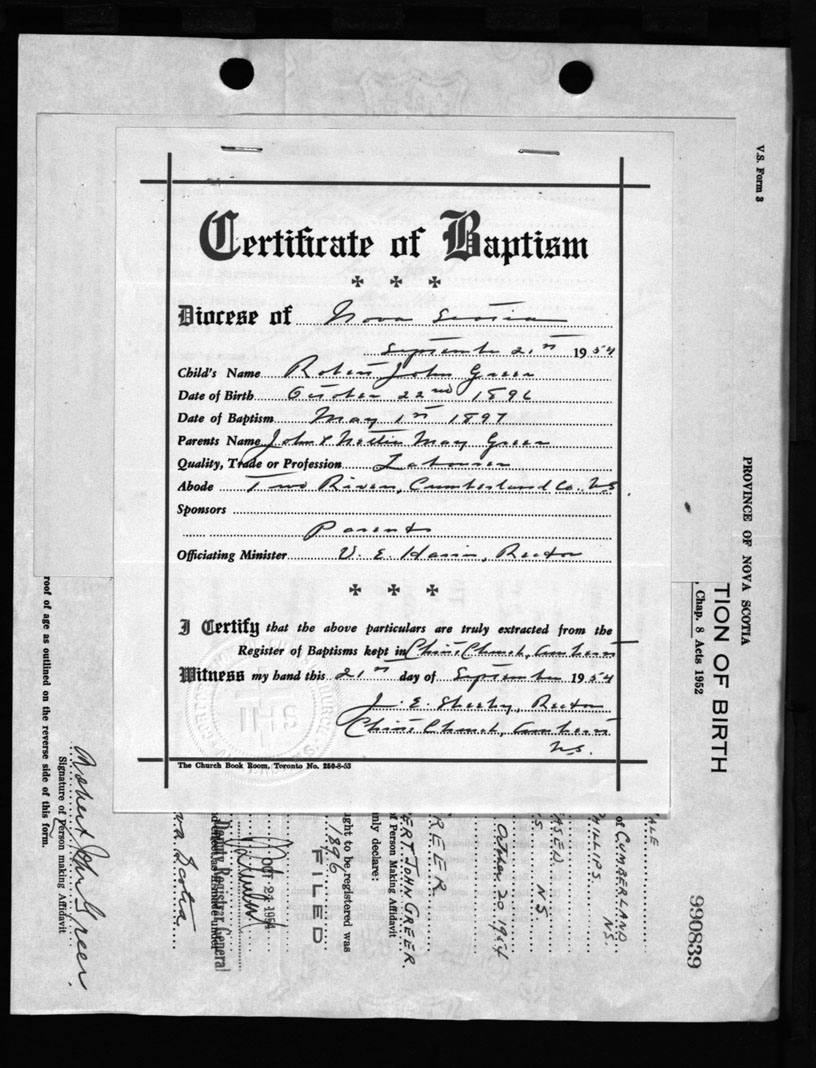 Certificate of Baptism
Diocese of Nova Scotia
September 21st 1954
Child's Name Robert John Greer
Date of Birth October 22nd 1896
Date of Baptism May 1st 1897
Parents Name John & Nettie May Greer
Quality, Trade or Profession Labourer
Abode Two Rivers, Cumberland Co. N.S.
Sponsors
Parents
Officiating Minister V. E. Harris, Rector
I Certify that the above particulars are truly extracted from the
Register of Baptisms kept in Christ Church, Amherst
Witness my hand this 21st day of September 1954
J. E. Rector
Christ Church, Amherst
N.S.
The Church Book Room, Toronto No. 250-8-53
V.S. Form 3
PROVINCE OF NOVA SCOTIA
TION OF BIRTH
, Chap. 8 Acts 1952
990839
ALE
of CUMBERLAND
N.S.
HILLIPS.
ASED
S. N.S.
October 20 1954
REER
ERT JOHN GREER.
of Person Making Affidavit
nly declare:
ght to be registered was
1896
FILED
OCT 21 1954
Deputy Registrar General
va Scotia
roof of age as outlined on the reverse side of this form.
Robert John Greer.
Signature of Person making Affidavit